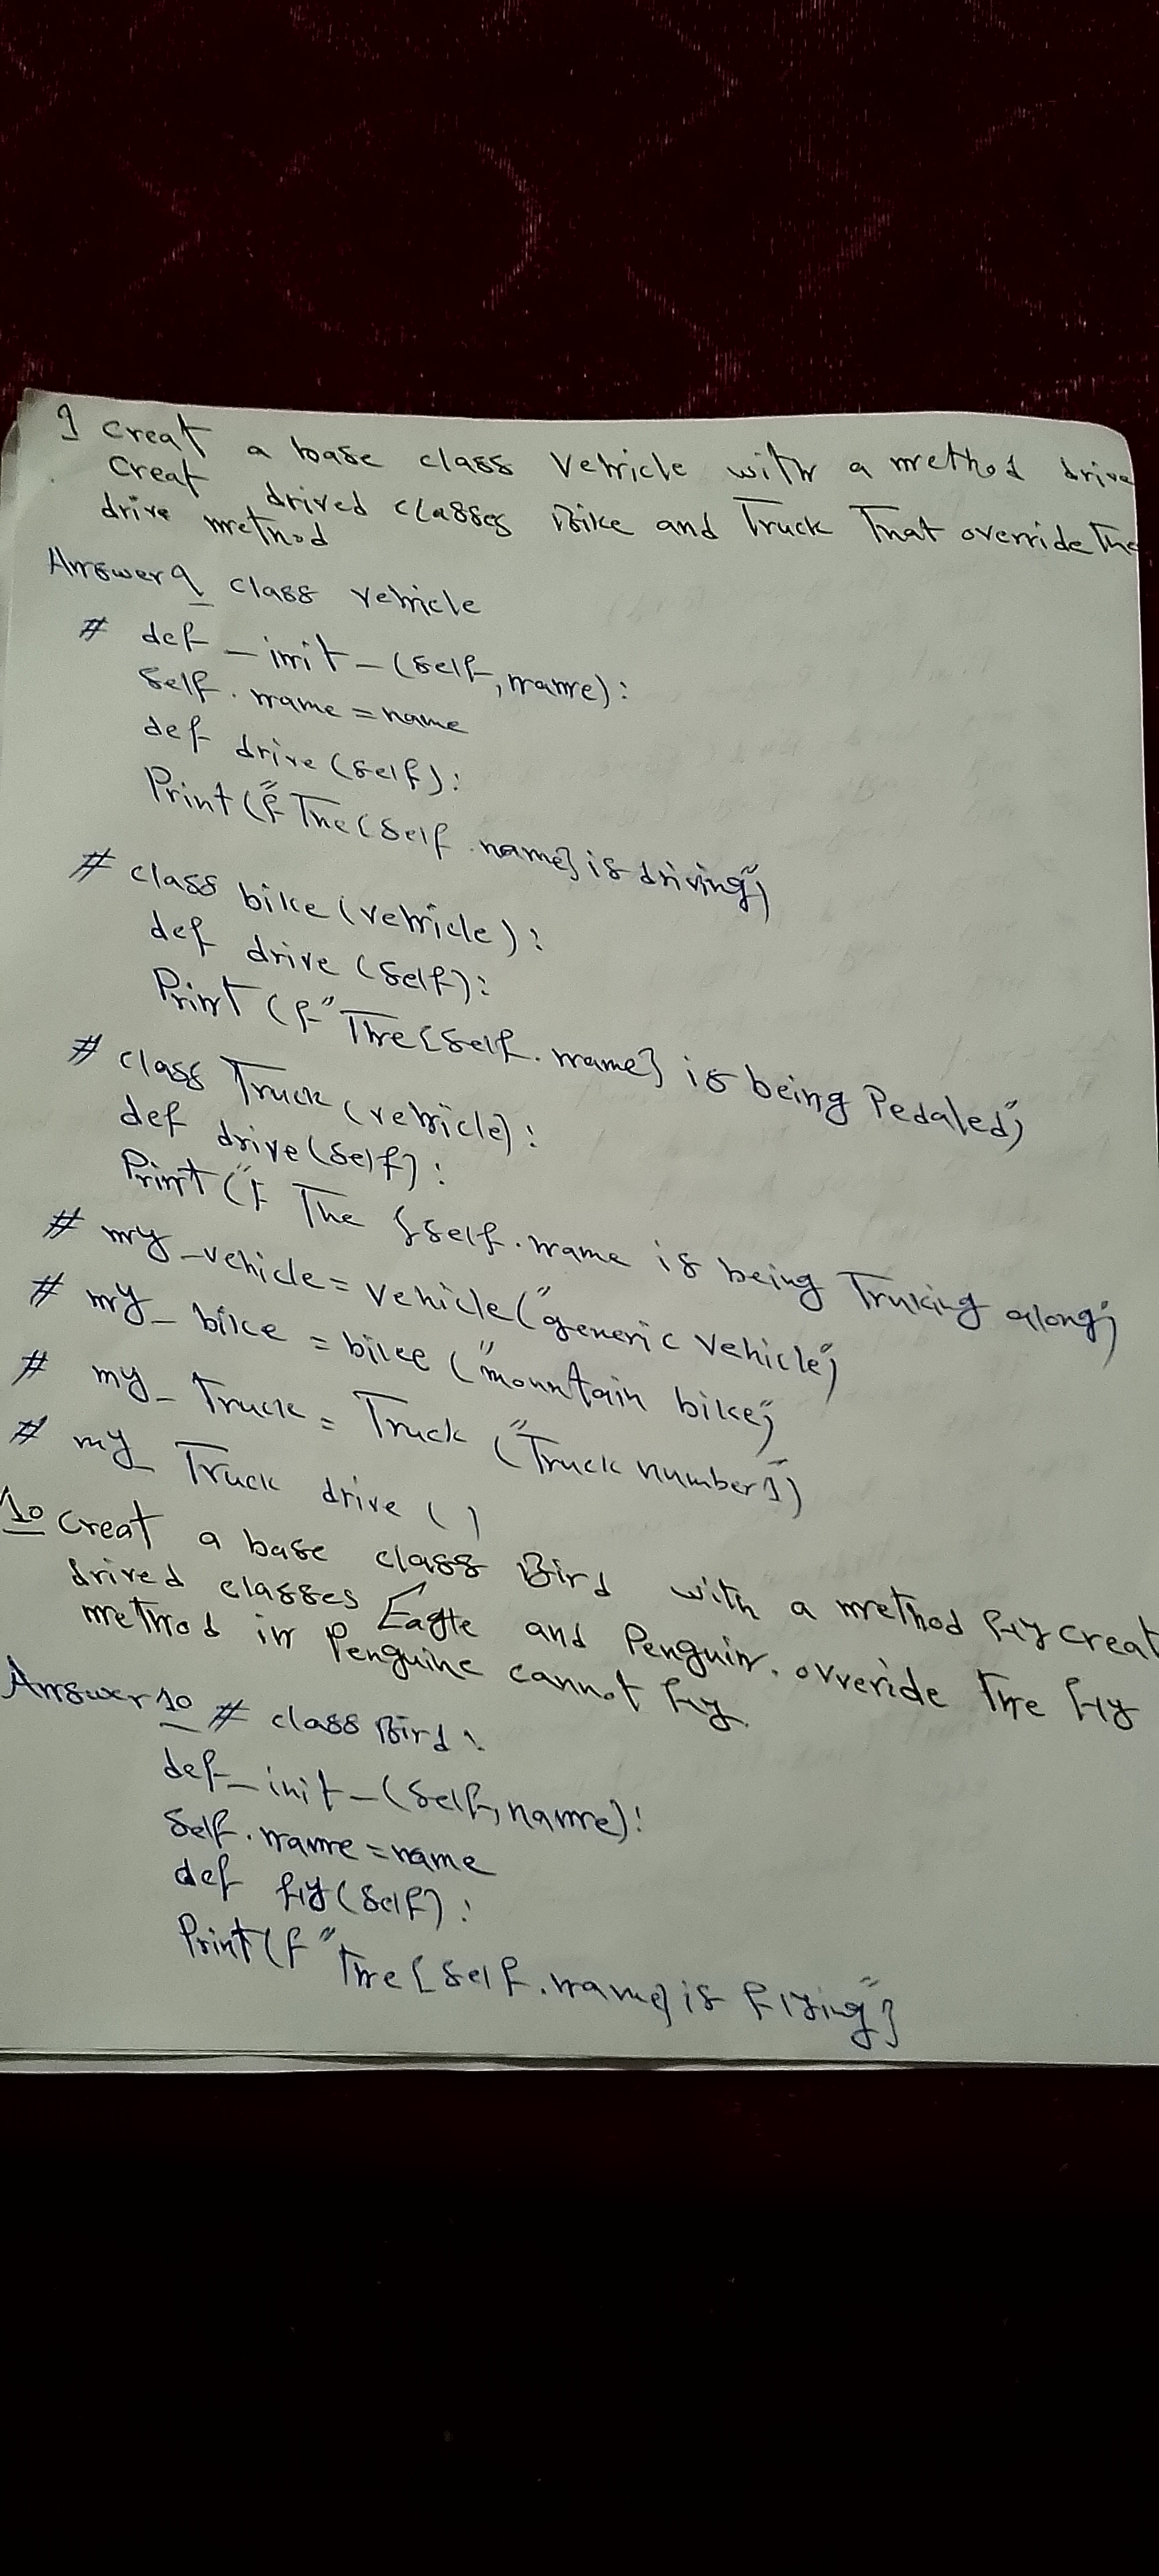 9 creat a base class Vehicle with a method drive
Creat drived classes Bike and Truck That override The
drive method
Answer 9 class vehicle
# def _init_(self, name):
self.name = name
def drive (self):
Print (f" The (self.name} is driving")
# class bike (vehicle):
def drive (self):
Print (f" The {self.name} is being Pedaled")
# class Truck (vehicle):
def drive (self):
Print ("f The {self.name is being Truking along")
# my_vehicle = vehicle ("generic vehicle")
# my_bike = bike ("mountain bike")
# my_Truck = Truck ("Truck number 1")
# my_Truck drive ()
10 Creat a base class Bird with a method fly creat
drived classes Eagle and Penguin. ovveride The fly
method in Penguine cannot fly.
Answer 10 # class Bird:
def _init_(self, name):
self.name = name
def fly (self):
Print (f" The {self.name} is flying"}